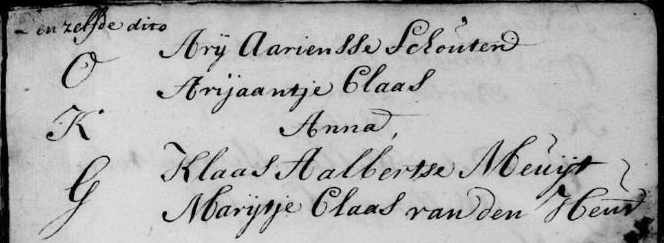 en zelfde dito
O Arÿ Aariensse Schouten
Arijaantje Claas
K Anna,
G Klaas Aalbertse Meuijt
Marÿtje Claas van den Heuv